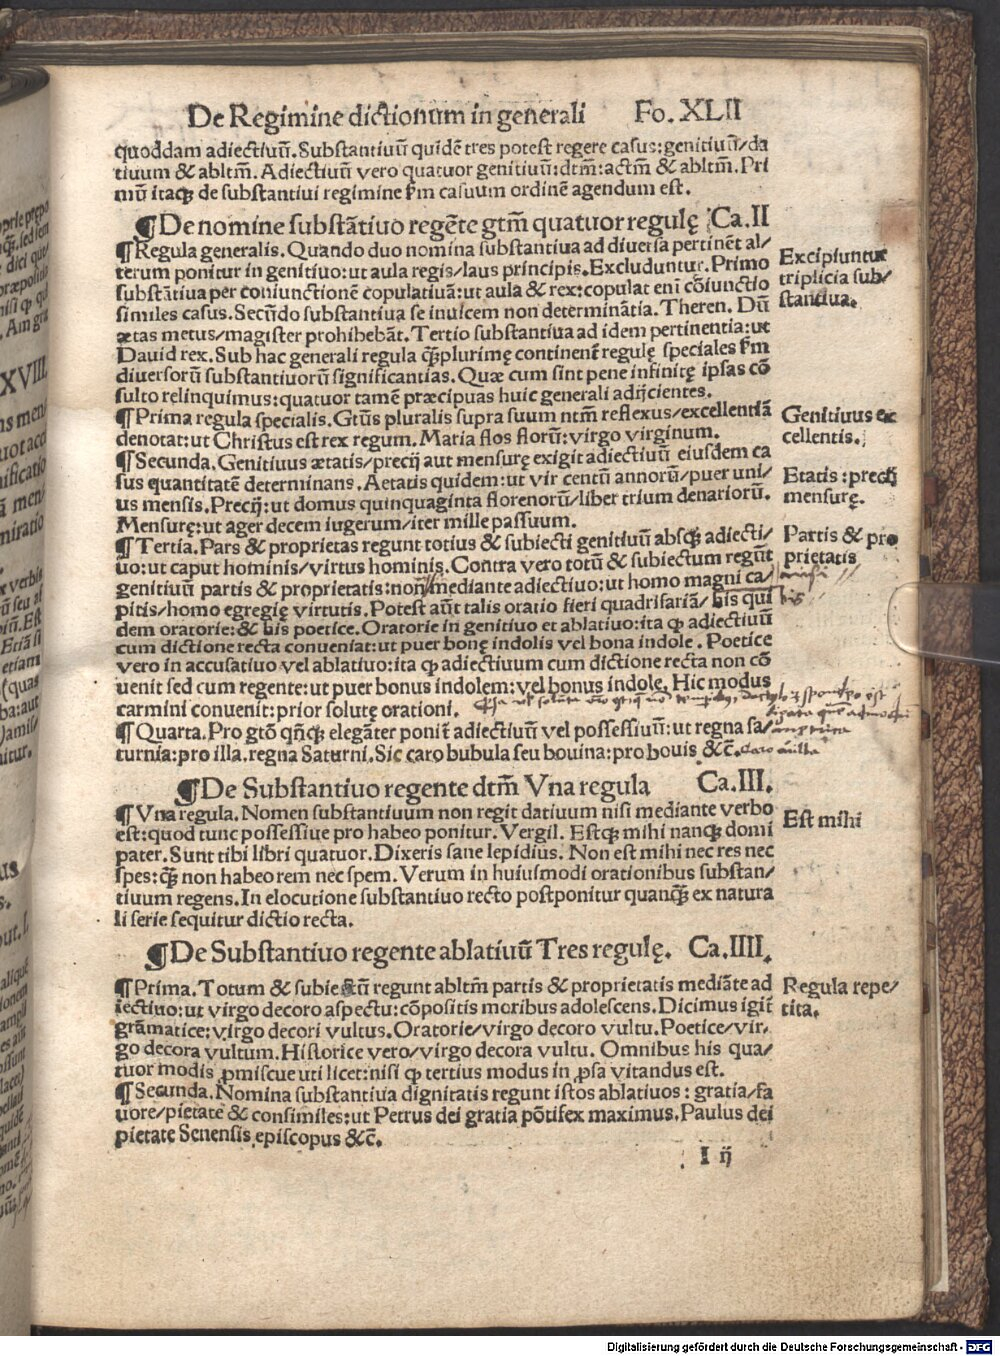 De Regimine dictionum in generali Fo. XLII
quoddam adiectiuū. Substantiuū quidē tres potest regere casus: genitiuū/da
tiuum & abltm̄. Adiectiuū vero quatuor genitiuū: dtm̄: actm̄ & abltm̄. Pri
mū itaqꝫ de substantiui regimine ſm casuum ordinē agendum est.
¶ De nomine substātiuo regēte gtm̄ quatuor regulę Ca. II
¶ Regula generalis. Quando duo nomina substantiua ad diuersa pertinēt al/
terum ponitur in genitiuo: ut aula regis/laus principis. Excluduntur. Primo
substātiua per coniunctionē copulatiuā: ut aula & rex: copulat eni cōiunctio
similes casus. Secūdo substantiua se inuicem non determinātia. Theren. Dū
ætas metus/magister prohibebāt. Tertio substantiua ad idem pertinentia: ut
Dauid rex. Sub hac generali regula qꝫ̄plurimę continent̄ regulę speciales ſm
diuersorū substantiuorū significantias. Quæ cum sint pene infinitę ipsas cō
sulto relinquimus: quatuor tamē præcipuas huic generali adijcientes.
¶ Prima regula specialis. Gtūs pluralis supra suum ntm̄ reflexus/excellentiā
denotat: ut Christus est rex regum. Maria flos florū: virgo virginum.
¶ Secunda. Genitiuus ætatis/precij aut mensurę exigit adiectiuū eiusdem ca
sus quantitatē determinans. Aetatis quidem: ut vir centū annorū/puer uni/
us mensis. Precij: ut domus quinquaginta florenorū/liber trium denariorū.
Mensurę: ut ager decem iugerum/iter mille passuum.
¶ Tertia. Pars & proprietas regunt totius & subiecti genitiuū absqꝫ adiecti/
uo: ut caput hominis/virtus hominis. Contra vero totū & subiectum regūt
genitiuū partis & proprietatis: non mediante adiectiuo: ut homo magni ca/
pitis/homo egregię virtutis. Potest aūt talis oratio fieri quadrifariā/bis qui
dem oratorie: & bis poetice. Oratorie in genitiuo et ablatiuo: ita ꝙ adiectiuū
cum dictione recta conueniat: ut puer bonę indolis vel bona indole. Poetice
vero in accusatiuo vel ablatiuo: ita ꝙ adiectiuum cum dictione recta non cō
uenit sed cum regente: ut puer bonus indolem: vel bonus indole. Hic modus
carmini conuenit: prior solutę orationi.
¶ Quarta. Pro gtō qn̄qꝫ elegāter ponit̄ adiectiuū vel possessiuū: ut regna sa/
turnia: pro illa. regna Saturni. Sic caro bubula seu bouina: pro bouis &c̄.
¶ De Substantiuo regente dtm̄ Vna regula Ca. III.
¶ Vna regula. Nomen substantiuum non regit datiuum nisi mediante verbo
est: quod tunc possessiue pro habeo ponitur. Vergil. Estqꝫ mihi nanqꝫ domi
pater. Sunt tibi libri quatuor. Dixeris sane lepidius. Non est mihi nec res nec
spes: qꝫ̄ non habeo rem nec spem. Verum in huiusmodi orationibus substan/
tiuum regens. In elocutione substantiuo recto postponitur quanqꝫ̄ ex natura
li serie sequitur dictio recta.
¶ De Substantiuo regente ablatiuū Tres regulę. Ca. IIII.
¶ Prima. Totum & subiectū regunt abltm̄ partis & proprietatis mediāte ad
iectiuo: ut virgo decoro aspectu: cōpositis moribus adolescens. Dicimus igit̄
grāmatice: virgo decori vultus. Oratorie/virgo decoro vultu. Poetice/vir/
go decora vultum. Historice vero/virgo decora vultu. Omnibus his qua/
tuor modis ꝓmiscue uti licet: nisi ꝙ tertius modus in ꝓsa vitandus est.
¶ Secunda. Nomina substantiua dignitatis regunt istos ablatiuos: gratia/fa
uore/pietate & consimiles: ut Petrus dei gratia pōtifex maximus. Paulus dei
pietate Senensis episcopus &c̄.
I ij
Excipiuntur
triplicia sub/
stantiua.
Genitiuus ex
cellentis.
Etatis: precij
mensurę.
Partis & pro
prietatis
Est mihi
Regula repe/
tita.
Digitalisierung gefördert durch die Deutsche Forschungsgemeinschaft - DFG